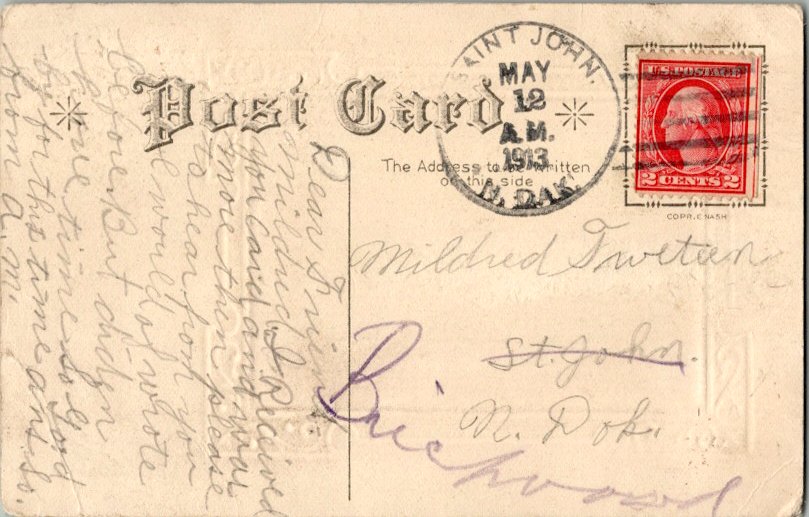 Post Card
The Address to be written
on this side
SAINT JOHN,
MAY
12
A.M.
1913
N. DAK.
U.S. POSTAGE
2 CENTS 2
COPR. E. NASH
Mildred Tweten
St. John.
N. Dak.
Birchwood
Dear Friend
Mildred. I Received
you card and was
more then please
to hear from you
I would of wrote
before. But didn
have time. So God
by for this time ans. So.
from a. m.